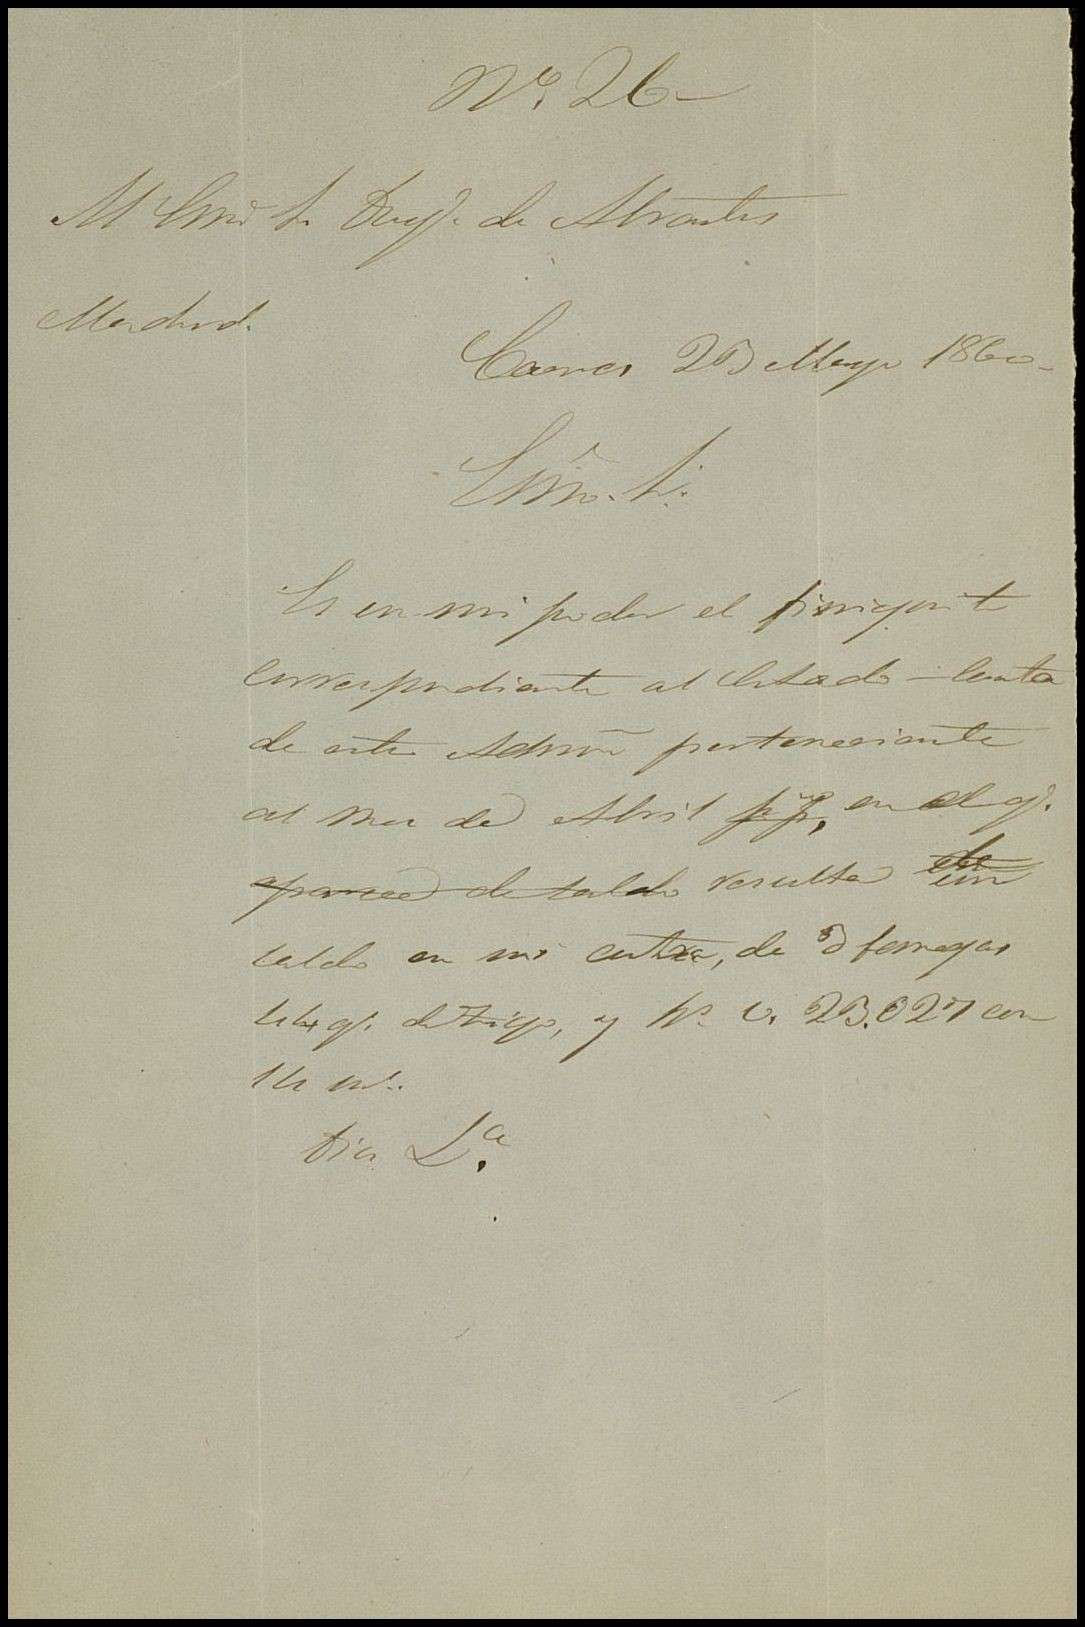 Nº. 26-
Al Excmo Sr Duqe. de Abrantes
Madrid.
Mayo 1860.
Excmo. Sr.
Es en mi poder el finiquito
correspondiente al Estado-Cuenta
de esta Admon perteneciente
al mes de Abril pp, en el q.
aparece de saldo resulta un
saldo en mi contra, de fanegas
de trigo, y Rs. v. 23.027 con
Dios La.